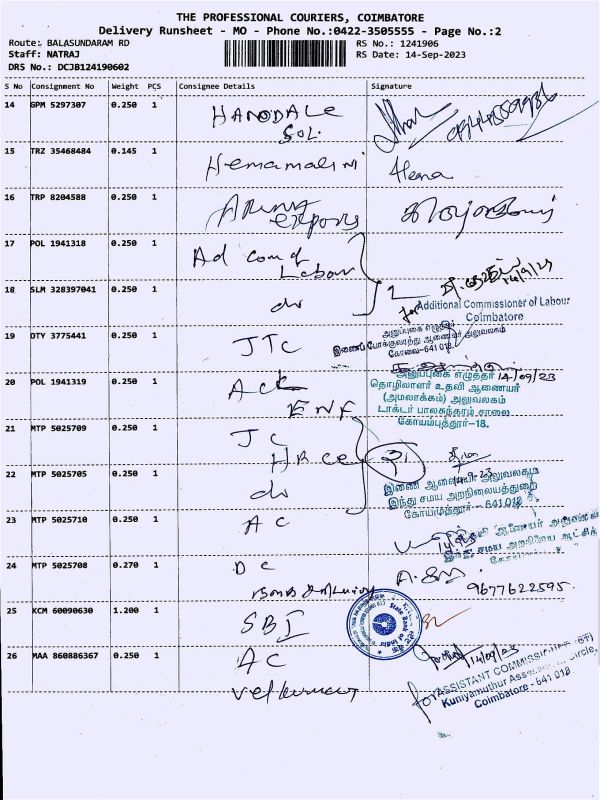 THE PROFESSIONAL COURIERS, COIMBATORE
Delivery Runsheet - MO - Phone No.:0422-3505555 - Page No.:2
Route: BALASUNDARAM RD
RS No.: 1241906
Staff: NATRAJ
RS Date: 14-Sep-2023
DRS No.: DCJB124190602
S No Consignment No Weight PCS Consignee Details Signature
14 GPM 5297307 0.250 1
15 TRZ 35468484 0.145 1 Hemamalini Hema
16 TRP 8204588 0.250 1
17 POL 1941318 0.250 1 Ad com of
Labour
14/9/23
18 SLM 328397041 0.250 1 do
for Additional Commissioner of Labour
Coimbatore
19 OTY 3775441 0.250 1 JTC
அனுப்புகை எழுத்தர்
இணைப் போக்குவரத்து ஆணையர் அலுவலகம்
கோவை-641 018.
20 POL 1941319 0.250 1 ACL
ENF
14/09/23
அனுப்புகை எழுத்தர்
தொழிலாளர் உதவி ஆணையர்
(அமலாக்கம்) அலுவலகம்
டாக்டர் பாலசுந்தரம் சாலை
கோயம்புத்தூர்-18.
21 MTP 5025709 0.250 1 JC
HRCE
22 MTP 5025705 0.250 1 do
இணை ஆணையர் அலுவலகம்
இந்து சமய அறநிலையத்துறை
கோயமுத்தூர் - 641 018
23 MTP 5025710 0.250 1 AC
24 MTP 5025708 0.270 1 DC
9677622595
25 KCM 60090630 1.200 1 SBI
State Bank of India
26 MAA 860886367 0.250 1 AC
14/09/23
for ASSISTANT COMMISSIONER (ST)
Kuniyamuthur Assessment Circle,
Coimbatore - 641 018